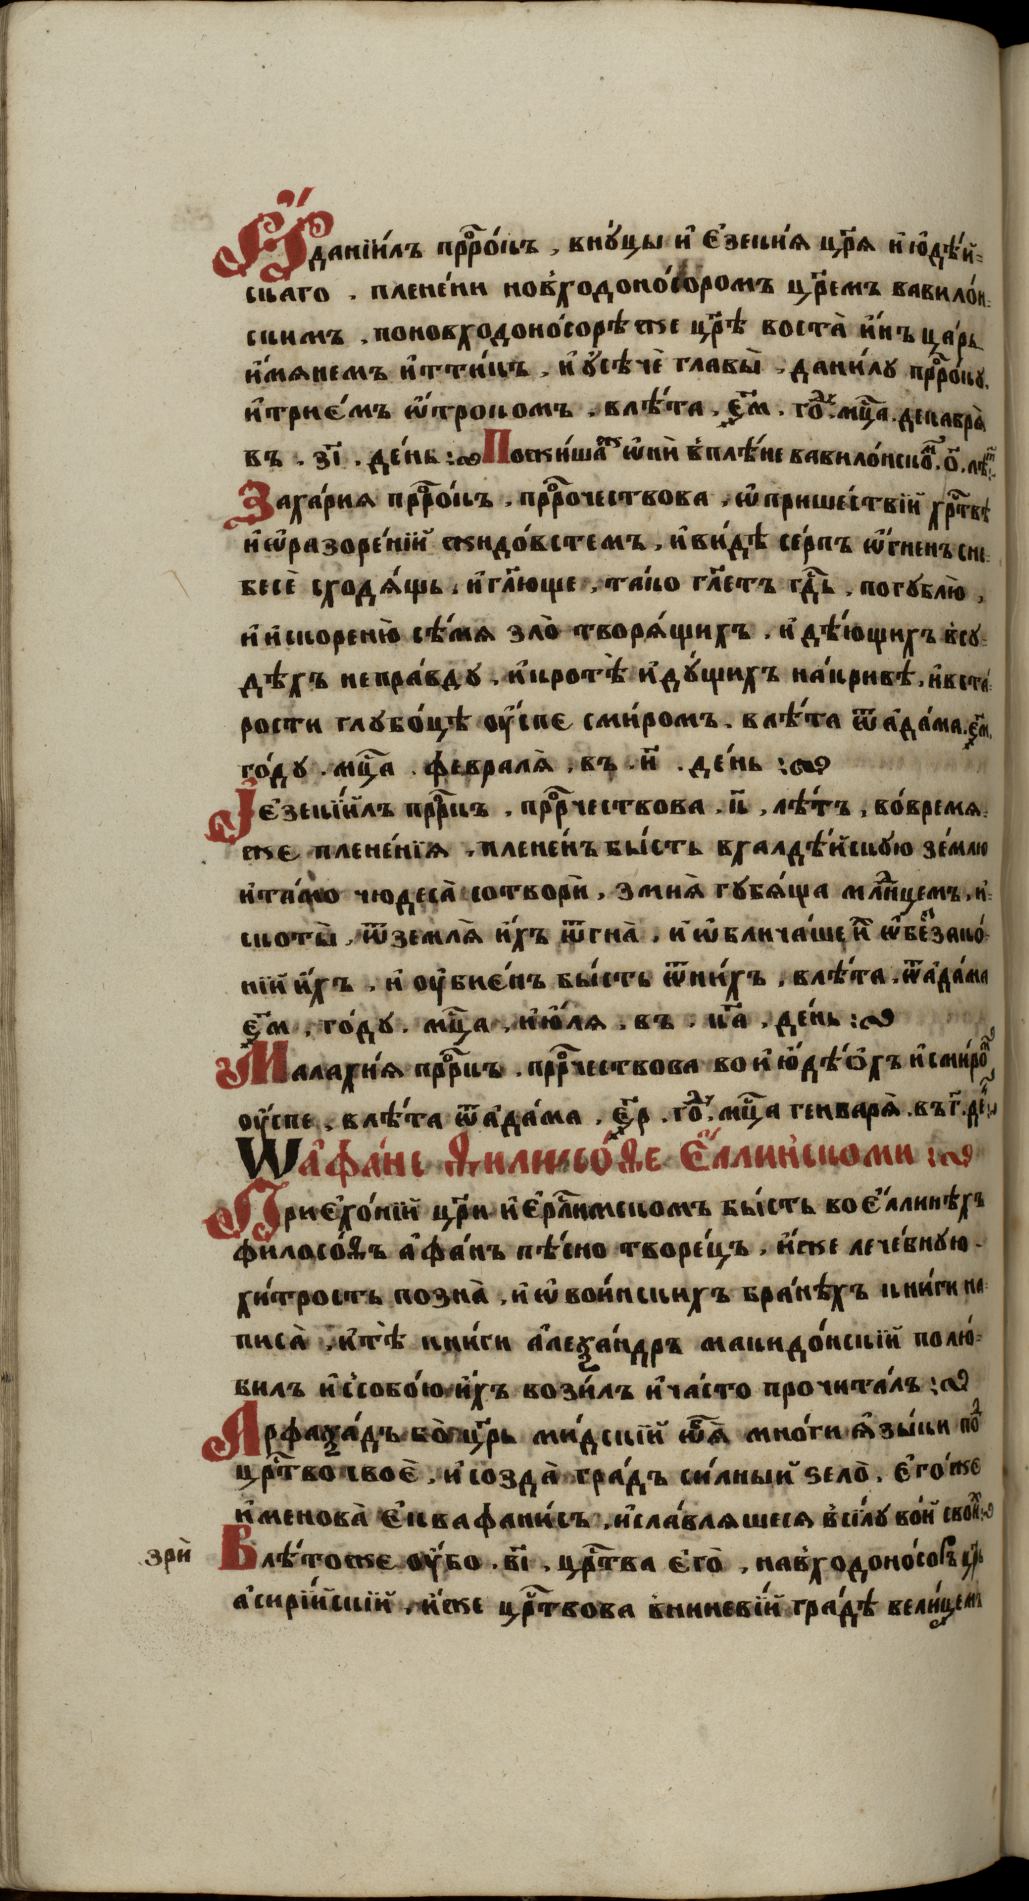 И҆ данїи́лъ прⷪ҇ро́къ, вну́цы и҆ є҆зеки́ѧ цр҃ѧ и҆ю҆дѣ́й=
скаго . плене́ни новꙋходоно́соромъ цр҃емъ вавило́н=
скимъ . поновꙋходоно́сорѣ же цр҃ѣ воста̀ и҆́нъ ца́рь
и҆́мѧнемъ и҆тти́къ , и҆ ᲂу҆сѣчѐ главы̀ , дани́лу прⷪ҇ро́ку ,
и҆трие́мъ ѿ́трокомъ . влѣ́та . ҂єѱ҃м . гоⷣꙋ . мцⷭ҇а . декабрѧ̀
въ . з҃і . де́нь : Пожи́шаⷤ ѻ҆нѝ вплѣ́не вавило́нскоⷨ . ѻ҃ . лѣⷮ :
Заха́риѧ прⷪ҇ро́къ . прⷪ҇рочествова . ѡ҆прише́ствїй хрⷭ҇твѣ
и҆ѡ҆разоре́нїй жидо́встемъ , и҆ви́дѣ се́рпъ ѻ҆́гненъ сне=
бесѐ сходѧ́щь . и҆гл҃юще , та́ко гл҃етъ гдⷭ҇ь , погублю̀ ,
и҆ и҆скореню̀ сѣ́мѧ зло̀ творѧ́щихъ . и҆ дѣ́ющихъ всу=
дѣхъ непра́вду , и҆кротѣ̀ и҆ду́щихъ на́кривѣ , и҆вста́=
рости глубо́цѣ ᲂу҆́спе сми́ромъ . влѣ́та ѿа҆да́ма . ҂єѱ҃м .
го́ду . мцⷭ҇а . февралѧ̀ . въ . и҃ . де́нь :
І҆є҆зекїи́лъ прⷪ҇ркъ . прⷪ҇рчествова . к҃ , лѣ́тъ , во́времѧ
же плене́нїѧ . плене́нъ бы́сть вхалдѣ́йскую зе́млю
и҆та́мо чюдеса̀ сотворѝ , змиѧ̀ губѧ́ща млⷣнцемъ , и҆
скоты̀ , ѿземлѧ̀ и҆́хъ ѿгна̀ , и҆ ѡ҆блича́ше ꙗ҆̀ ѡ҆беззако́=
нїй и҆́хъ , и҆ ᲂу҆бие́нъ бы́сть ѿни́хъ , влѣ́та . ѿа҆да́ма
҂єѱ҃м , го́ду . мцⷭ҇а , и҆ю҆́лѧ . въ . к҃а , де́нь :
Малахи́ѧ прⷪ҇ркъ . прⷪ҇рчествова во и҆ю҆дѣ́ѻхъ и҆сми́роⷨ
ᲂу҆́спе , влѣ́та ѿа҆да́ма , ҂єѱ҃р . гоⷣꙋ . мцⷭ҇а генварѧ̀ . въ г҃ . деⷩ҇ :
Ѡ҆ а҆фа́нѣ ѳилисо́ѳе є҆́ллинскоми :
При є҆хо́нїй цр҃и и҆є҆рлⷭ҇имскомъ бы́сть во є҆́ллинѣхъ
филосо́ѳъ а҆фа́нъ пѣ́сно творе́цъ . и҆́же лече́бную
хи́трость позна̀ , и҆ ѡ҆во́инскихъ бра́нѣхъ кни́ги на=
писа̀ , и҆тѣ̀ кни́ги а҆леѯа́ндръ макидо́нскїй полю́=
билъ и҆ ссобо́ю и҆́хъ вози́лъ и҆ча́сто прочита́лъ :
Арфаѯа́дъ бо̀ цр҃ь ми́дскїй многи ѧ҆зы́ки поⷣ
црⷭ҇тво своѐ , и҆ созда̀ гра́дъ си́лный ѕело̀ , є҆го́же
и҆менова̀ є҆кбафани́съ , и҆сла́влѧшесѧ всїлу во́й свои́ⷯ :
Влѣ́тоже ᲂу҆́бо . в҃і , црⷭ҇тва є҆гѡ̀ , навꙋходоно́соръ цр҃ь
зрѝ
а҆сирі́йскїй , и҆́же црⷭ҇твова вниневі́й гра́дѣ вели́цемъ